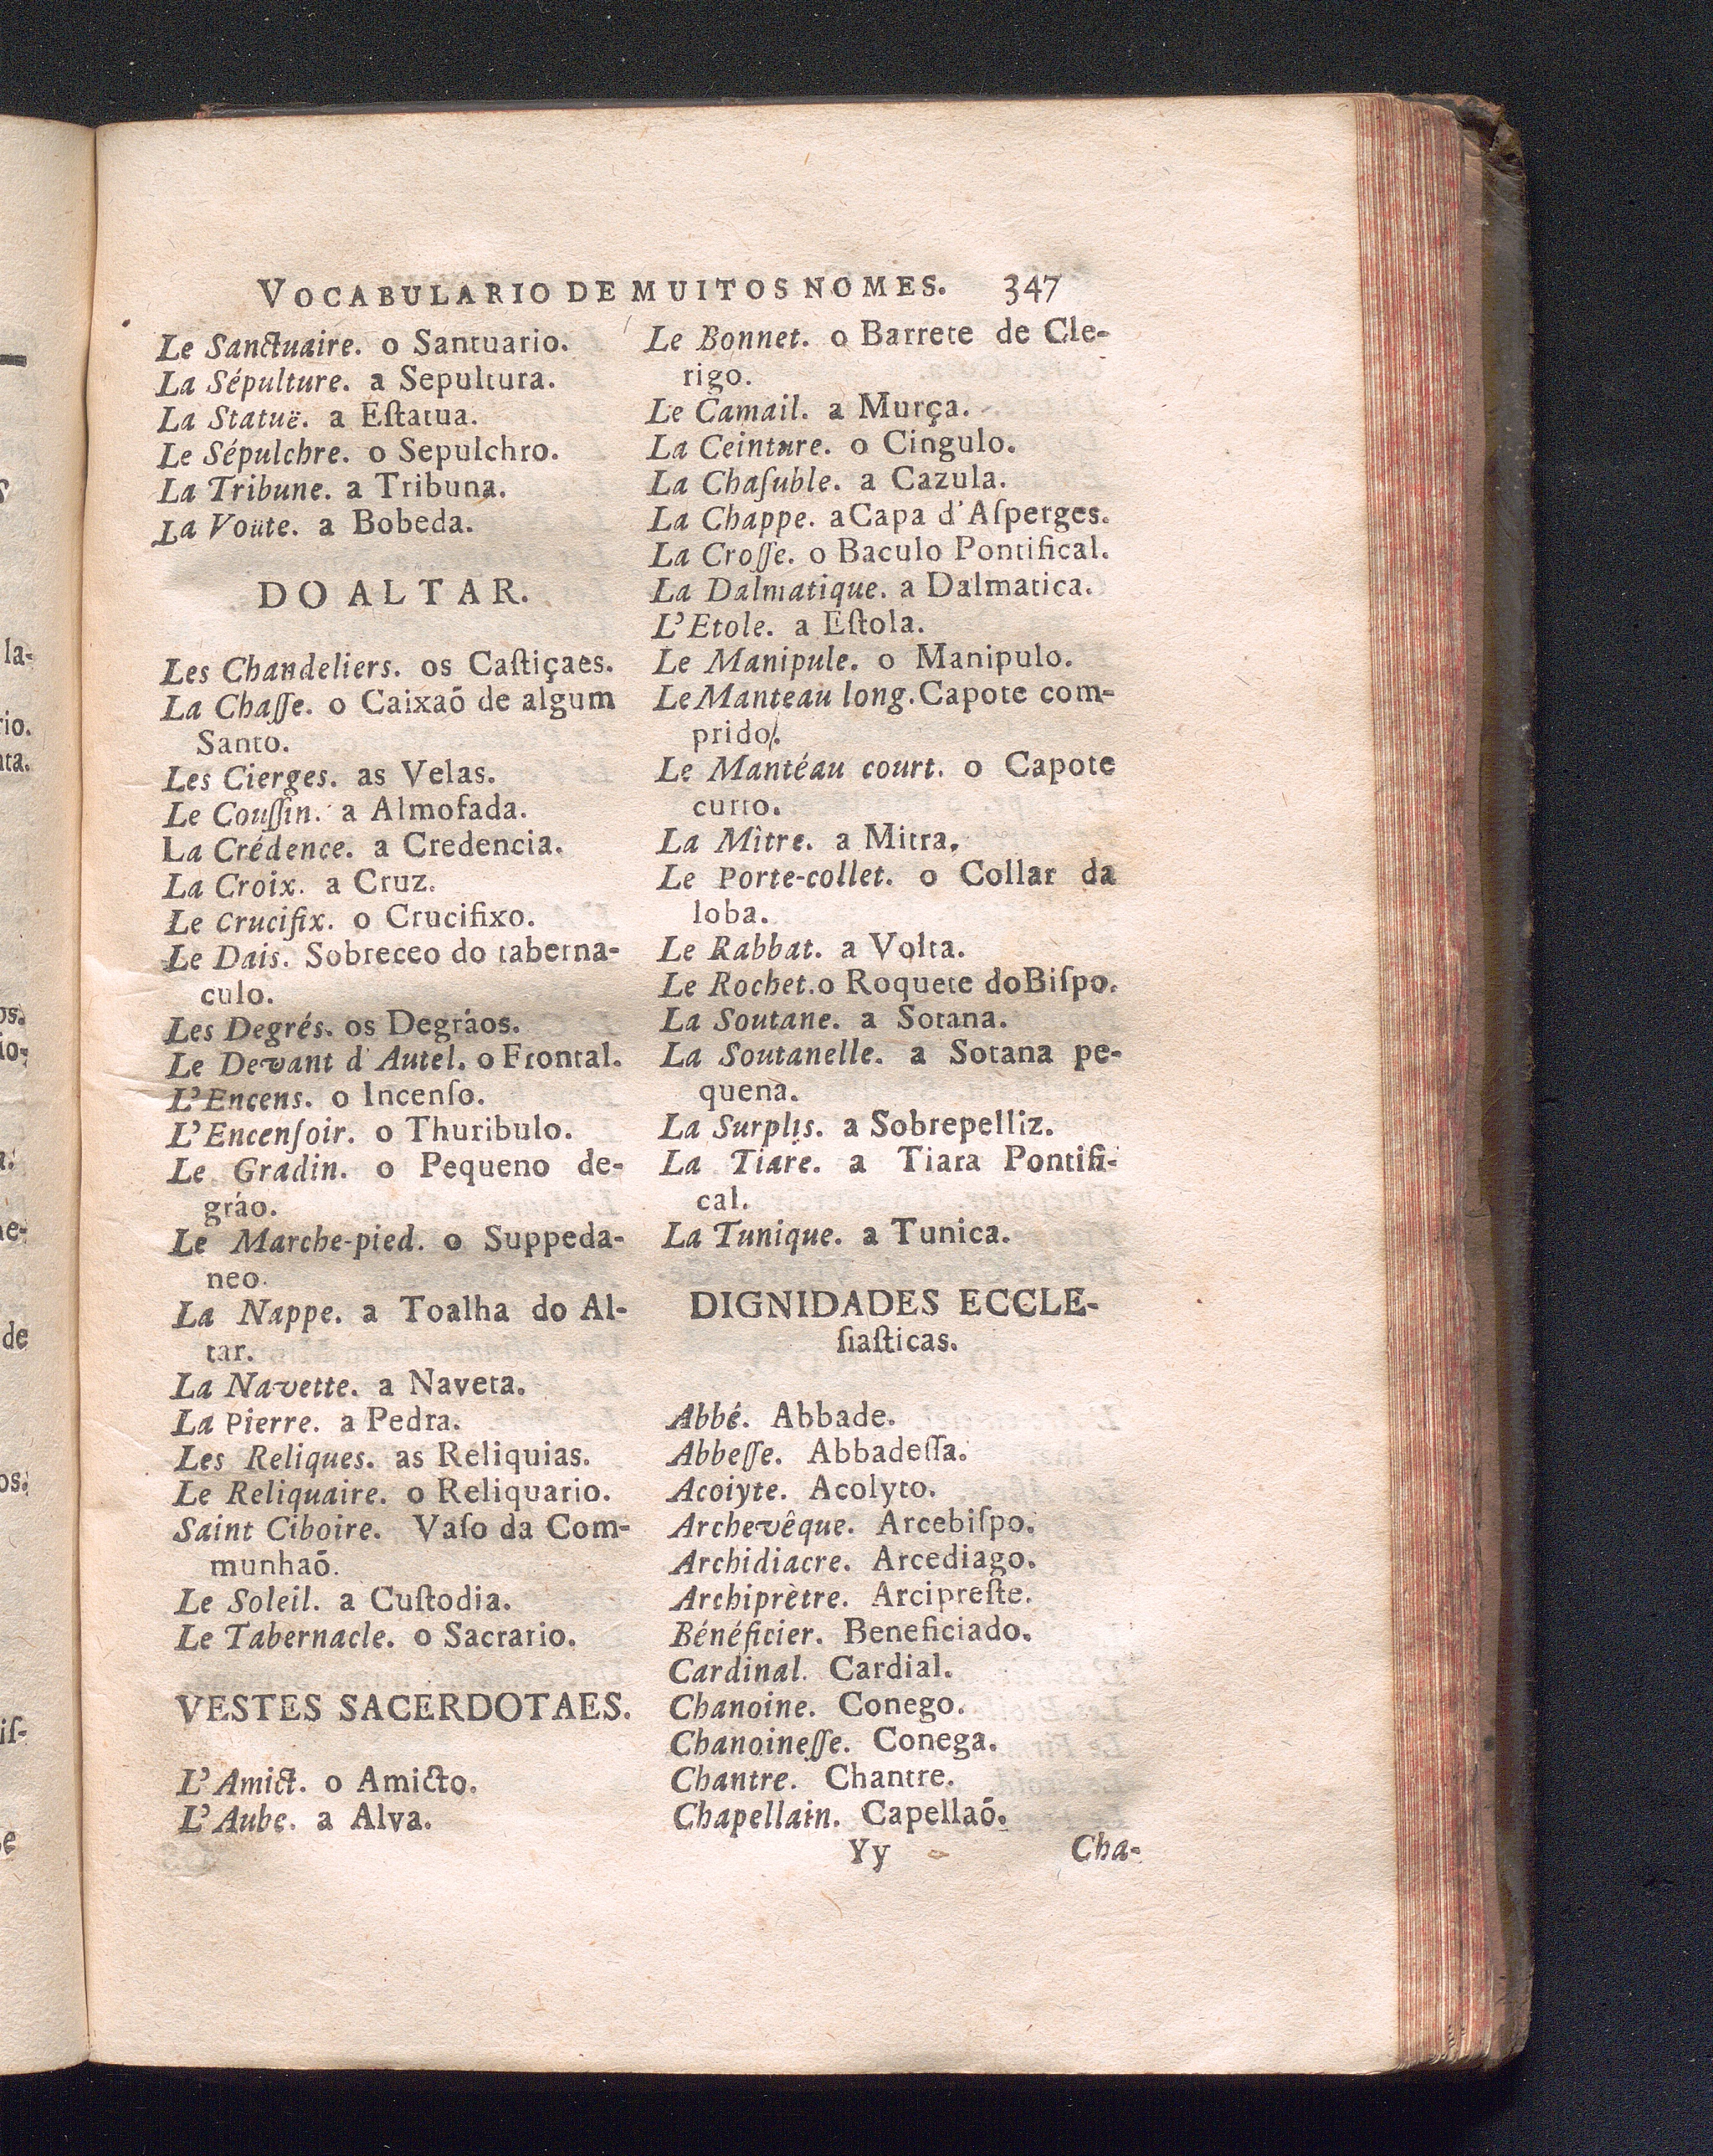 VOCABULARIO DE MUITOS NOMES. 347
Le Sanctuaire. o Santuario.
La Sépulture. a Sepultura.
La Statuë. a Eſtatua.
Le Sépulchre. o Sepulchro.
La Tribune. a Tribuna.
La Voüte. a Bobeda.
DO ALTAR.
Les Chandeliers. os Caſtiçaes.
La Chaſſe. o Caixaõ de algum
Santo.
Les Cierges. as Velas.
Le Couſſin. a Almofada.
La Crédence. a Credencia.
La Croix. a Cruz.
Le Crucifix. o Crucifixo.
Le Dais. Sobreceo do taberna-
culo.
Les Degrés. os Degráos.
Le Devant d'Autel. o Frontal.
L'Encens. o Incenſo.
L'Encenſoir. o Thuribulo.
Le Gradin. o Pequeno de-
gráo.
Le Marche-pied. o Suppeda-
neo.
La Nappe. a Toalha do Al-
tar.
La Navette. a Naveta.
La Pierre. a Pedra.
Les Reliques. as Reliquias.
Le Reliquaire. o Reliquario.
Saint Ciboire. Vaſo da Com-
munhaõ.
Le Soleil. a Cuſtodia.
Le Tabernacle. o Sacrario.
VESTES SACERDOTAES.
L'Amict. o Amicto.
L'Aube. a Alva.
Le Bonnet. o Barrete de Cle-
rigo.
Le Camail. a Murça.
La Ceinture. o Cingulo.
La Chaſuble. a Cazula.
La Chappe. a Capa d'Aſperges.
La Croſſe. o Baculo Pontifical.
La Dalmatique. a Dalmatica.
L'Etole. a Eſtola.
Le Manipule. o Manipulo.
Le Manteau long. Capote com-
prido.
Le Mantéau court. o Capote
curto.
La Mître. a Mitra.
Le Porte-collet. o Collar da
loba.
Le Rabbat. a Volta.
Le Rochet. o Roquete do Biſpo.
La Soutane. a Sotana.
La Soutanelle. a Sotana pe-
quena.
La Surplis. a Sobrepelliz.
La Tiare. a Tiara Pontifi-
cal.
La Tunique. a Tunica.
DIGNIDADES ECCLE-
ſiaſticas.
Abbé. Abbade.
Abbeſſe. Abbadeſſa.
Acoiyte. Acolyto.
Archevêque. Arcebiſpo.
Archidiacre. Arcediago.
Archiprètre. Arcipreſte.
Bénéficier. Beneficiado.
Cardinal. Cardial.
Chanoine. Conego.
Chanoineſſe. Conega.
Chantre. Chantre.
Chapellain. Capellaõ.
Yy Cha-